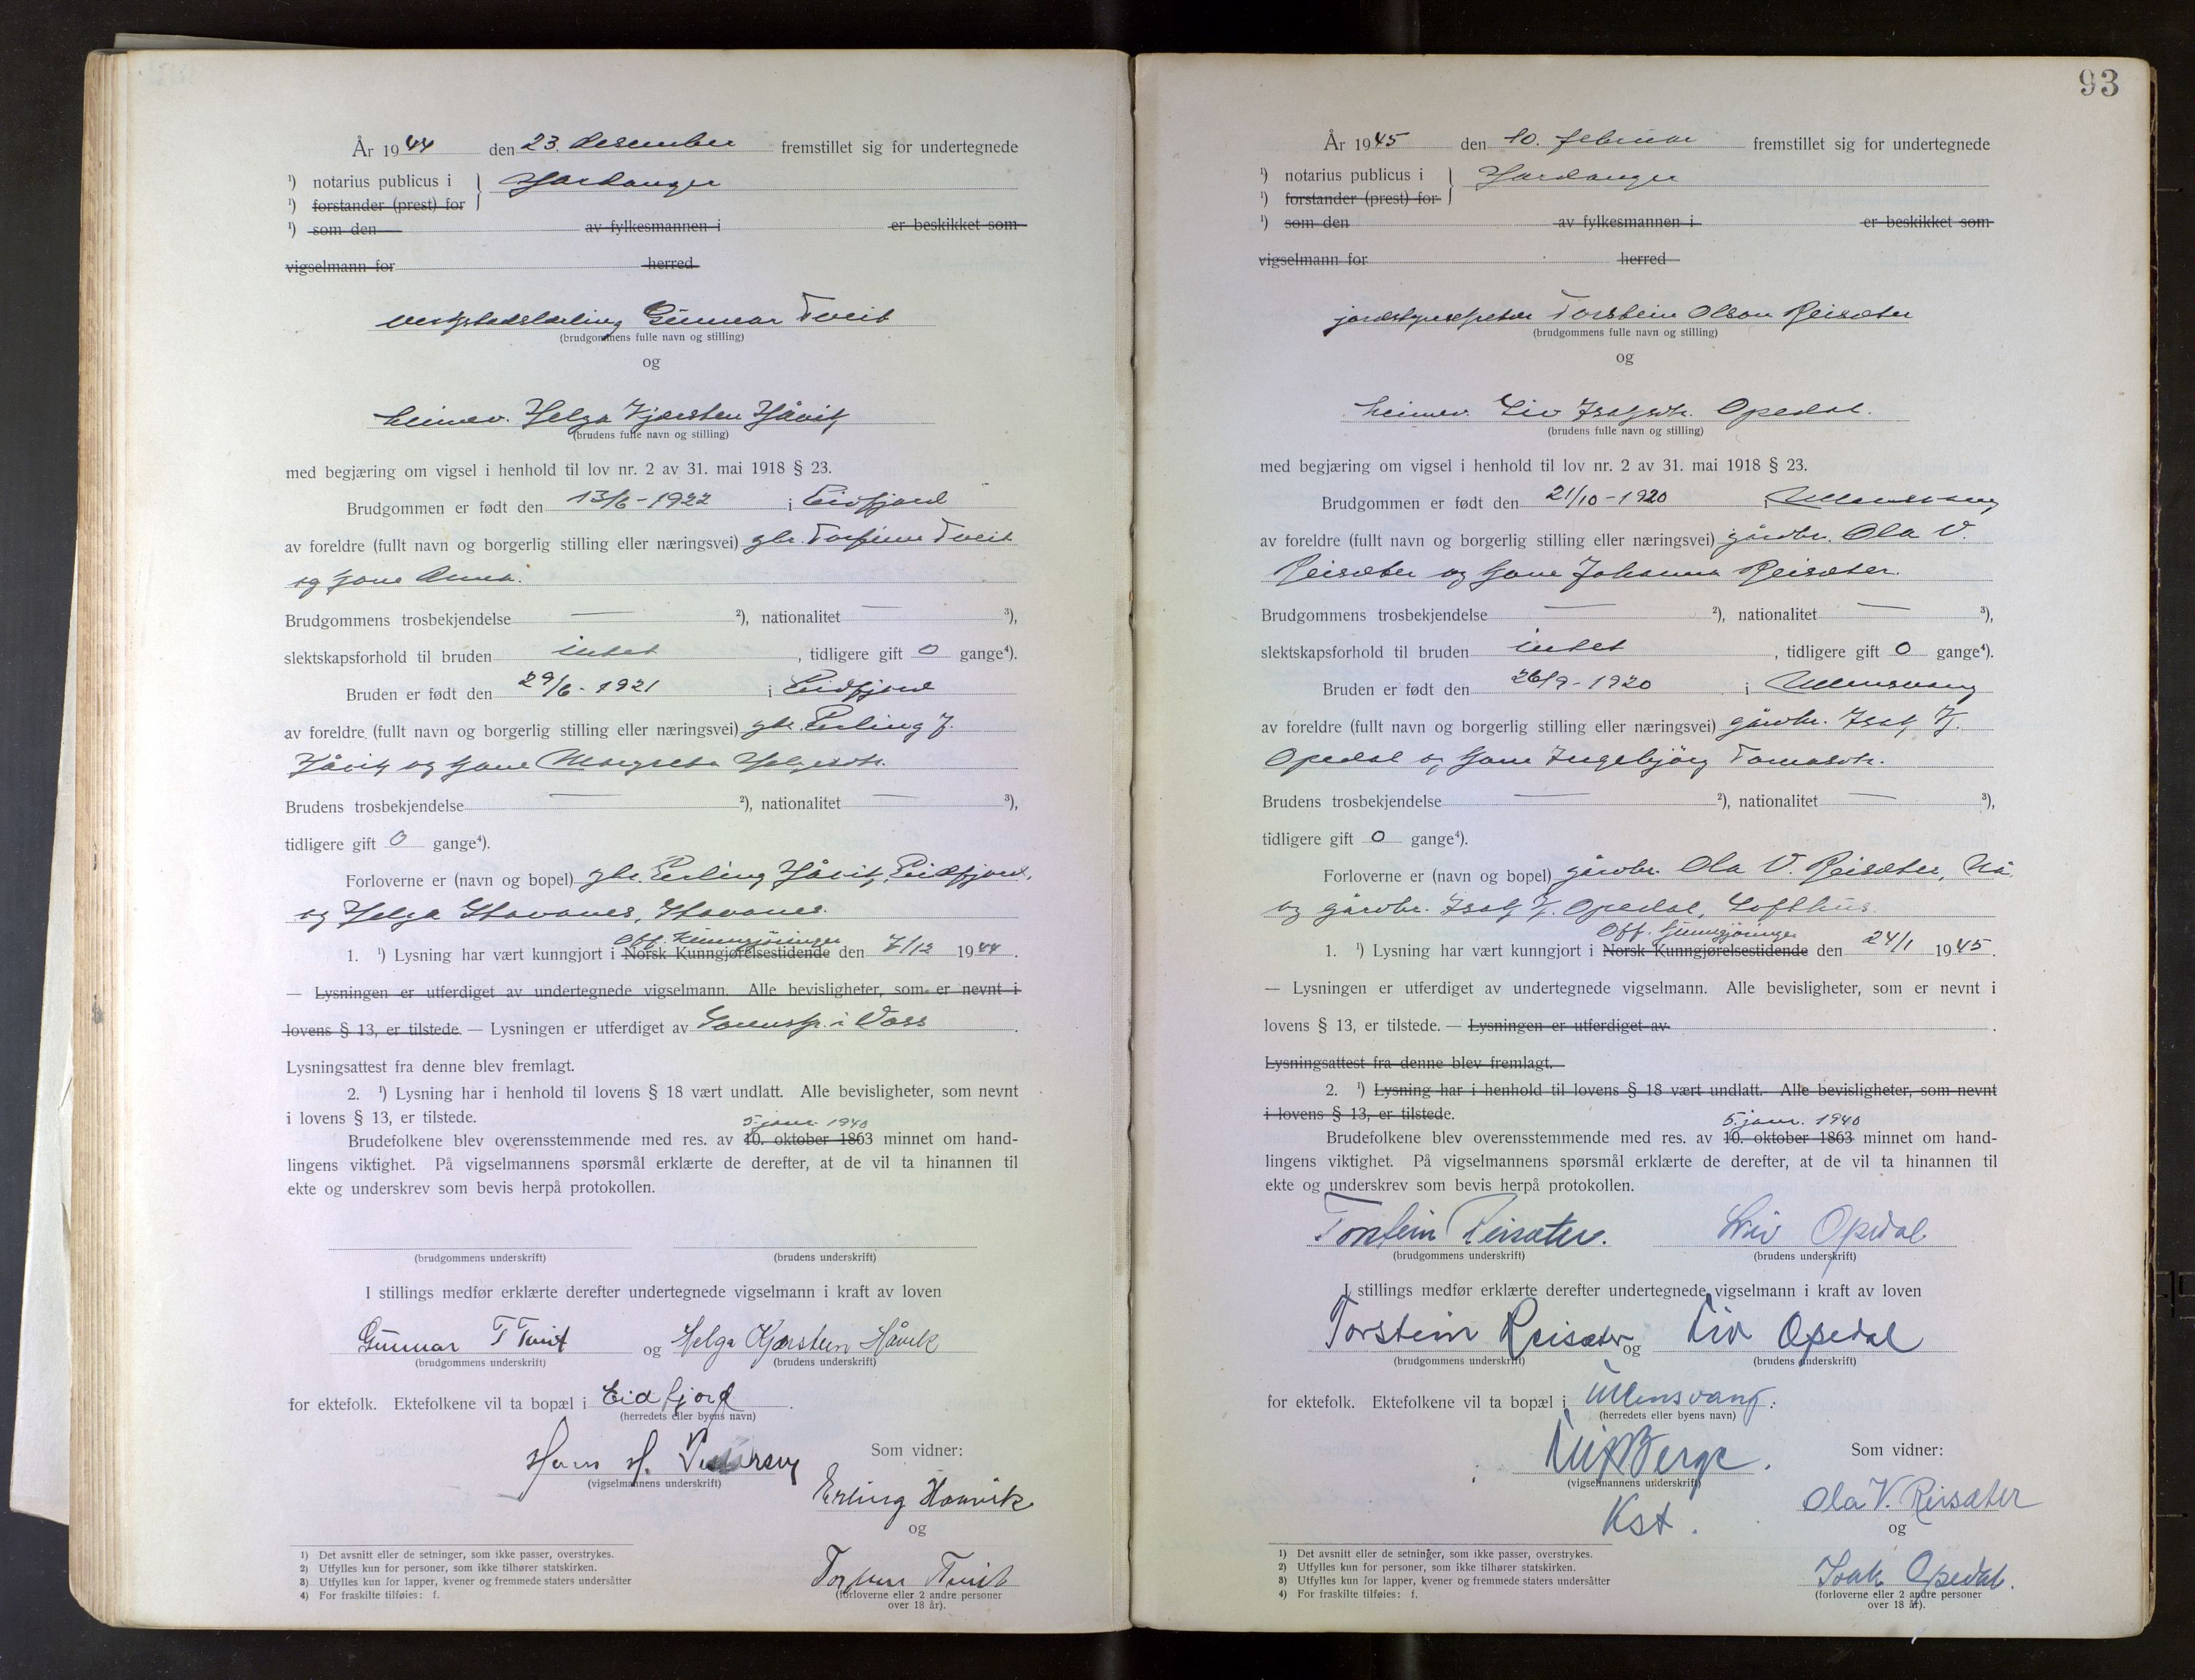 År 1944 den 23. desember fremstillet sig for undertegnede
¹) notarius publicus i } Hardanger
¹) forstander (prest) for
¹) som den av fylkesmannen i er beskikket som
vigselmann for herred
Gunnar Tveit
(brudgommens fulle navn og stilling)
og
heimev. Helga Kjærsten Håvik
(brudens fulle navn og stilling)
med begjæring om vigsel i henhold til lov nr. 2 av 31. mai 1918 § 23.
Brudgommen er født den 13/6 - 1922 i Eidfjord
av foreldre (fullt navn og borgerlig stilling eller næringsvei) gbr. Torfinn Tveit
og kone Anna.
Brudgommens trosbekjendelse — ²), nationalitet — ³),
slektskapsforhold til bruden intet , tidligere gift 0 gange⁴).
Bruden er født den 29/6 - 1921 i Eidfjord
av foreldre (fullt navn og borgerlig stilling eller næringsvei) gbr. Erling J.
Håvik og kone Margreta Helgesdtr.
Brudens trosbekjendelse — ²), nationalitet — ³),
tidligere gift 0 gange⁴).
Forloverne er (navn og bopel) gbr. Erling Håvik, Eidfjord,
og Helga Stavanes, Stavanes.
off. kunngjøringer
1. ¹) Lysning har vært kunngjort i Norsk Kunngjørelsestidende den 7/12 1944.
— Lysningen er utferdiget av undertegnede vigselmann. Alle bevisligheter, som er nevnt i
lovens § 13, er tilstede. — Lysningen er utferdiget av Sorenskr. i Voss .
Lysningsattest fra denne blev fremlagt.
2. ¹) Lysning har i henhold til lovens § 18 vært undlatt. Alle bevisligheter, som nevnt
i lovens § 13, er tilstede.
5. jan. 1940
Brudefolkene blev overensstemmende med res. av 10. oktober 1863 minnet om hand-
lingens viktighet. På vigselmannens spørsmål erklærte de derefter, at de vil ta hinannen til
ekte og underskrev som bevis herpå protokollen.
(brudgommens underskrift) (brudens underskrift)
I stillings medfør erklærte derefter undertegnede vigselmann i kraft av loven
Gunnar T Tveit og Helga Kjærsteen Håvik
(brudgommens underskrift) (brudens underskrift)
for ektefolk. Ektefolkene vil ta bopæl i Eidfjord .
(herredets eller byens navn)
Hans H. Som vidner:
(vigselmannens underskrift)
Erling Haavik
og
Torfinn Tveit
(forloverne eller 2 andre personer
over 18 år).
1) Det avsnitt eller de setninger, som ikke passer, overstrykes.
2) Utfylles kun for personer, som ikke tilhører statskirken.
3) Utfylles kun for lapper, kvener og fremmede staters undersåtter
4) For fraskilte tilføies: f.
93
År 1945 den 10. februar fremstillet sig for undertegnede
¹) notarius publicus i } Hardanger
¹) forstander (prest) for
¹) som den av fylkesmannen i er beskikket som
vigselmann for herred
Torstein Olson Reisæter
(brudgommens fulle navn og stilling)
og
heimev. Liv Isaksdtr. Opedal.
(brudens fulle navn og stilling)
med begjæring om vigsel i henhold til lov nr. 2 av 31. mai 1918 § 23.
Brudgommen er født den 21/10 - 1920 i Ullensvang
av foreldre (fullt navn og borgerlig stilling eller næringsvei) gårdbr. Ola V.
Reisæter og kone Johanna Reisæter.
Brudgommens trosbekjendelse — ²), nationalitet — ³),
slektskapsforhold til bruden intet , tidligere gift 0 gange⁴).
Bruden er født den 26/9 - 1920 i Ullensvang
av foreldre (fullt navn og borgerlig stilling eller næringsvei) gårdbr. Isak K.
Opedal og kone Ingebjörg Tomasdtr.
Brudens trosbekjendelse — ²), nationalitet — ³),
tidligere gift 0 gange⁴).
Forloverne er (navn og bopel) gårdbr. Ola V. Reisæter, Nå
og gårdbr. Isak K. Opedal, Lofthus.
Off. kunngjøringer
1. ¹) Lysning har vært kunngjort i Norsk Kunngjørelsestidende den 24/1 1945.
— Lysningen er utferdiget av undertegnede vigselmann. Alle bevisligheter, som er nevnt i
lovens § 13, er tilstede. — Lysningen er utferdiget av .
Lysningsattest fra denne blev fremlagt.
2. ¹) Lysning har i henhold til lovens § 18 vært undlatt. Alle bevisligheter, som nevnt
i lovens § 13, er tilstede.
5. jan. 1940
Brudefolkene blev overensstemmende med res. av 10. oktober 1863 minnet om hand-
lingens viktighet. På vigselmannens spørsmål erklærte de derefter, at de vil ta hinannen til
ekte og underskrev som bevis herpå protokollen.
Torstein Reisæter. Liv Opedal
(brudgommens underskrift) (brudens underskrift)
I stillings medfør erklærte derefter undertegnede vigselmann i kraft av loven
Torstein Reisæter og Liv Opedal
(brudgommens underskrift) (brudens underskrift)
for ektefolk. Ektefolkene vil ta bopæl i Ullensvang .
(herredets eller byens navn)
Berge. Som vidner:
(vigselmannens underskrift)
Kst.
Ola V. Reisæter
og
Isak Opedal.
(forloverne eller 2 andre personer
over 18 år).
1) Det avsnitt eller de setninger, som ikke passer, overstrykes.
2) Utfylles kun for personer, som ikke tilhører statskirken.
3) Utfylles kun for lapper, kvener og fremmede staters undersåtter
4) For fraskilte tilføies: f.